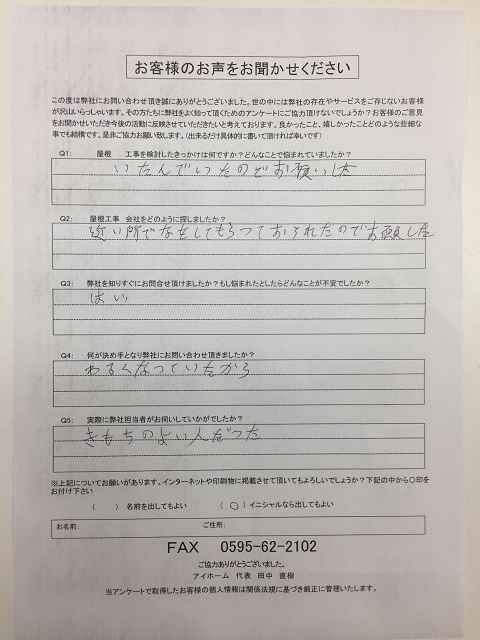 お客様のお声をお聞かせください
この度は弊社にお問い合わせ頂き誠にありがとうございました。世の中には弊社の存在やサービスをご存じないお客様
が沢山いらっしゃいます。その方たちに弊社をよく知って頂くためのアンケートにご協力頂けないでしょうか？お客様のご意見
をお聞かせいただき今後の活動に反映させていただきたいと考えております。良かったこと、嬉しかったことどのような些細な
事でも結構です。是非ご協力お願い致します。（出来るだけ具体的に書いて頂ければ幸いです）
Q1: 屋根 工事を検討したきっかけは何ですか？どんなことで悩まれていましたか？
いたんでいたのでお願いした
Q2: 屋根工事 会社をどのように探しましたか？
近い所でなをしてもらっておられたのでお願した
Q3: 弊社を知りすぐにお問合せ頂けましたか？もし悩まれたとしたらどんなことが不安でしたか？
はい
Q4: 何が決め手となり弊社にお問い合わせ頂きましたか？
わるくなっていたから
Q5: 実際に弊社担当者がお伺いしていかがでしたか？
きもちのよい人だった
※上記についてお願いがあります。インターネットや印刷物に掲載させて頂いてもよろしいでしょうか？下記の中から〇印を
お付け下さい
（ ）名前を出してもよい （〇）イニシャルなら出してもよい
お名前: ご住所:
FAX 0595-62-2102
ご協力ありがとうございました。
アイホーム 代表 田中 直樹
当アンケートで取得したお客様の個人情報は関係法規に基づき厳正に管理いたします。